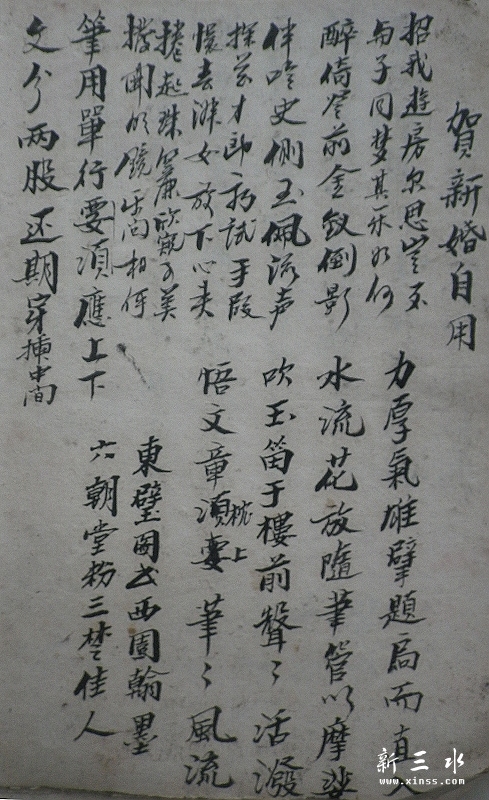 賀新婚自用
招我遊房尔思豈不
与子同梦其乐如何
醉倚登前金釵倒影
伴吟史側玉佩流声
探花才郎初試手段
懷春淑女放下心夫
捲起珠簾欣窺美
撥開明镜问相何
筆用單行要須應上下
文分兩股还期穿揷中间
力厚氣雄擘題扃而直入
水流花放隨筆管以摩娑
吹玉笛于樓前聲〻活潑
悟文章須要枕上筆〻風流
東璧圖书西園翰墨
六朝堂粉三楚佳人
新三水
www.xinss.com